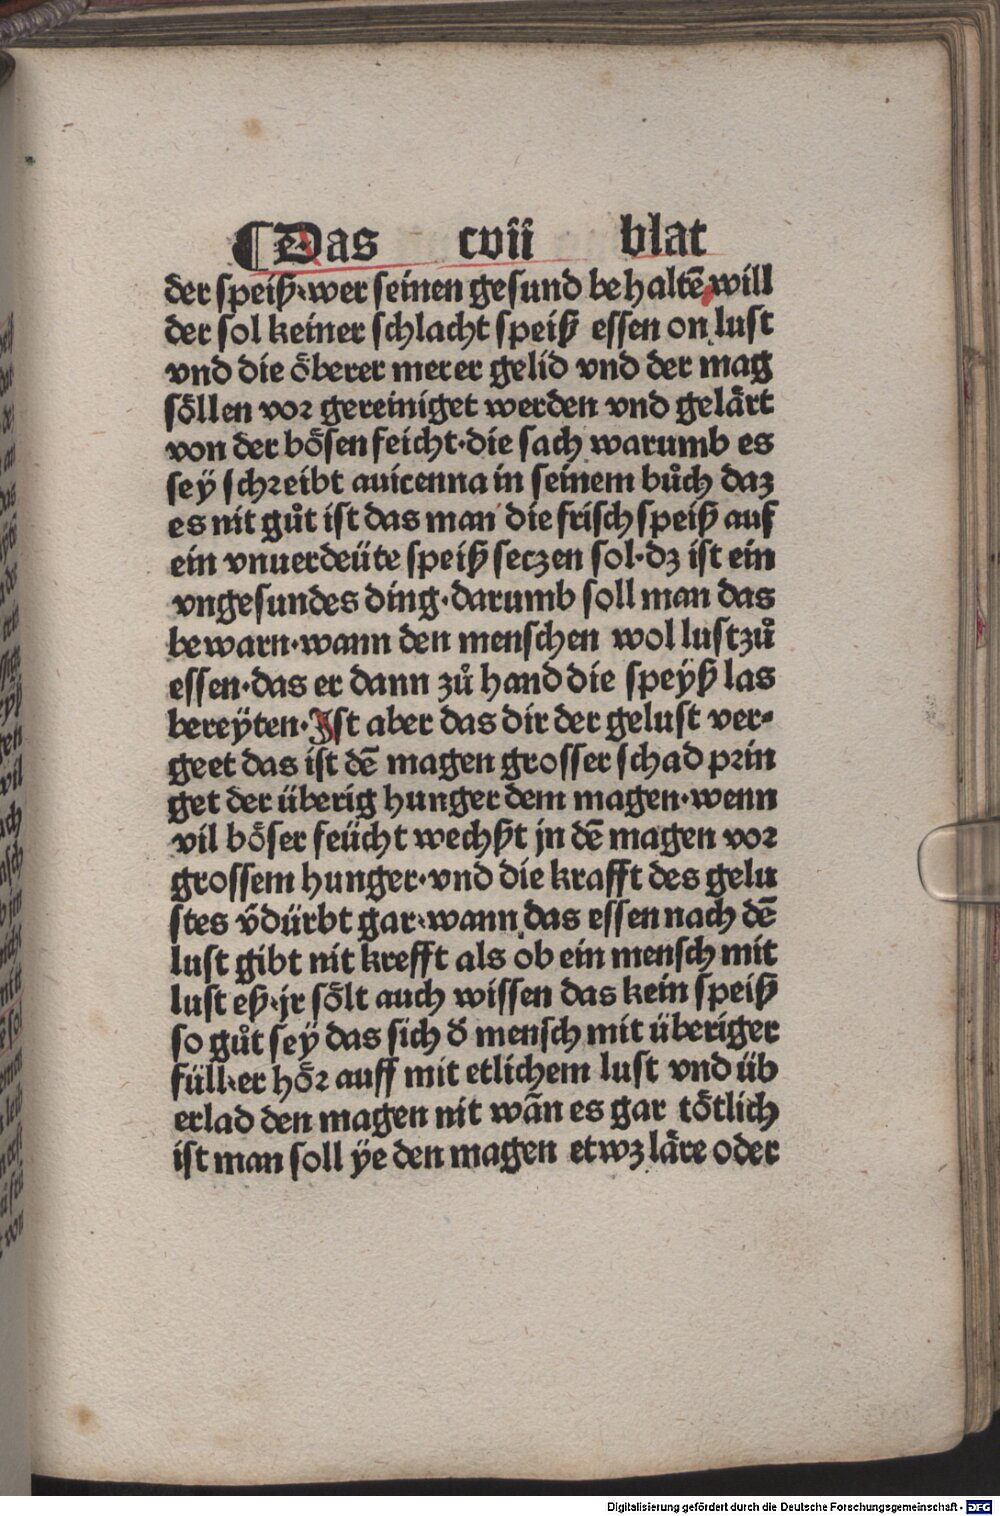 ¶ Das cvii blat
der speiß·wer seinen gesund behaltē will
der sol keiner schlacht speiß essen on lust
vnd die öberer merer gelid vnd der mag
söllen vor gereiniget werden vnd gelärt
von der bösen feicht·die sach warumb es
sey schreibt auicenna in seinem bůch daz
es nit gůt ist das man die frisch speiß auf
ein vnuerdeüte speiß seczen sol·dz ist ein
vngesundes ding·darumb soll man das
bewarn·wann den menschen wol lust zů
essen·das er dann zů hand die speyß las
bereyten·Ist aber das dir der gelust ver-
geet das ist dē magen grosser schad prin
get der überig hunger dem magen·wenn
vil böser feücht wechßt jn dē magen vor
grossem hunger·vnd die krafft des gelu
stes v̄dürbt gar·wann das essen nach dē
lust gibt nit krefft als ob ein mensch mit
lust eß·jr sölt auch wissen das kein speiß
so gůt sey das sich d̄ mensch mit überiger
füll·er hör auff mit etlichem lust vnd üb
erlad den magen nit wān es gar tötlich
ist man soll ye den magen etwz läre oder
Digitalisierung gefördert durch die Deutsche Forschungsgemeinschaft - DFG